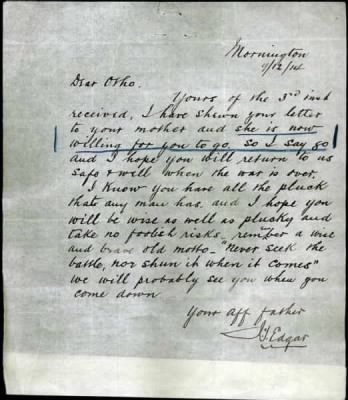 Mornington
9/12/14
Dear Otho.
Yours of the 3rd inst
received, I have shewn your letter
to your mother and she is now
willing for you to go. So I say go
and I hope you will return to us
safe & well when the war is over.
I know you have all the pluck
that any man has. and I hope you
will be wise as well as plucky and
take no foolish risks. rember a wise
and brave old motto. "Never seek the
battle, nor shun it when it comes"
we will probably see you when you
come down
Your aff father
Edgar